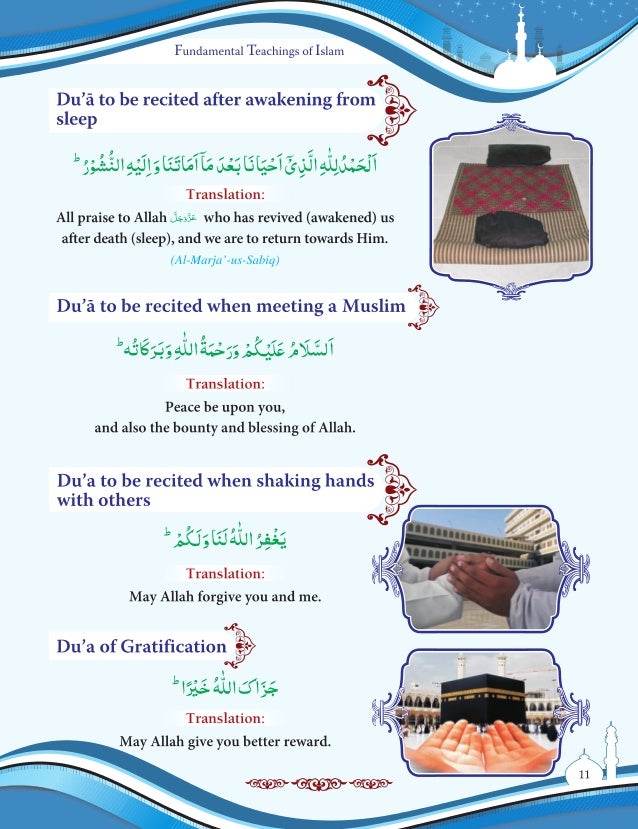 Fundamental Teachings of Islam
Du’ā to be recited after awakening from
sleep
اَلْحَمْدُ لِلّٰهِ الَّذِیْۤ اَحْیَانَا بَعْدَ مَاۤ اَمَاتَنَا وَ اِلَیْهِ النُّشُوْرُ ؕ
Translation:
All praise to Allah عَزَّوَجَلَّ who has revived (awakened) us
after death (sleep), and we are to return towards Him.
(Al-Marja’-us-Sabiq)
Du’ā to be recited when meeting a Muslim
اَلسَّلَامُ عَلَیْكُمْ وَرَحْمَةُ اللّٰهِ وَبَرَكَاتُه ؕ
Translation:
Peace be upon you,
and also the bounty and blessing of Allah.
Du’a to be recited when shaking hands
with others
یَغْفِرُ اللّٰهُ لَنَا وَلَكُمْ ؕ
Translation:
May Allah forgive you and me.
Du’a of Gratification
جَزَاکَ اللّٰهُ خَیْرًا ؕ
Translation:
May Allah give you better reward.
11